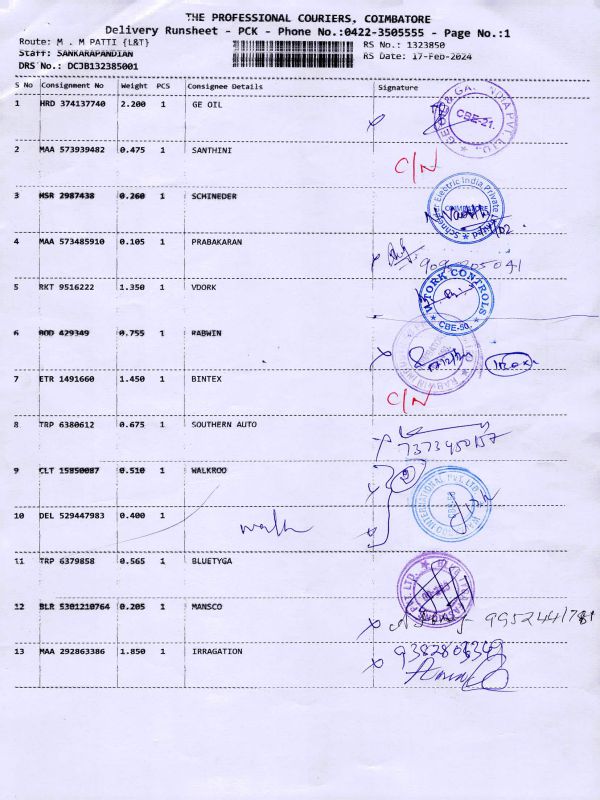 THE PROFESSIONAL COURIERS, COIMBATORE
Delivery Runsheet - PCK - Phone No.:0422-3505555 - Page No.:1
Route: M . M PATTI {L&T}
RS No.: 1323850
Staff: SANKARAPANDIAN
RS Date: 17-Feb-2024
DRS No.: DCJB132385001
S No Consignment No Weight PCS Consignee Details Signature
1 HRD 374137740 2.200 1 GE OIL
CBE-21.
2 MAA 573939482 0.475 1 SANTHINI
C/N
3 MSR 2987438 0.260 1 SCHINEDER
Schneider Electric India Private Limited
4 MAA 573485910 0.105 1 PRABAKARAN
5 RKT 9516222 1.350 1 VDORK
TORK CONTROLS
CBE-50.
6 BOD 429349 0.755 1 RABWIN
7 ETR 1491660 1.450 1 BINTEX
C/N
8 TRP 6380612 0.675 1 SOUTHERN AUTO
7373450157
9 CLT 15850087 0.510 1 WALKROO
INTERNATIONAL PVT. LTD.
10 DEL 529447983 0.400 1
11 TRP 6379858 0.565 1 BLUETYGA
PVT. LTD.
12 BLR 5301210764 0.205 1 MANSCO
13 MAA 292863386 1.850 1 IRRAGATION